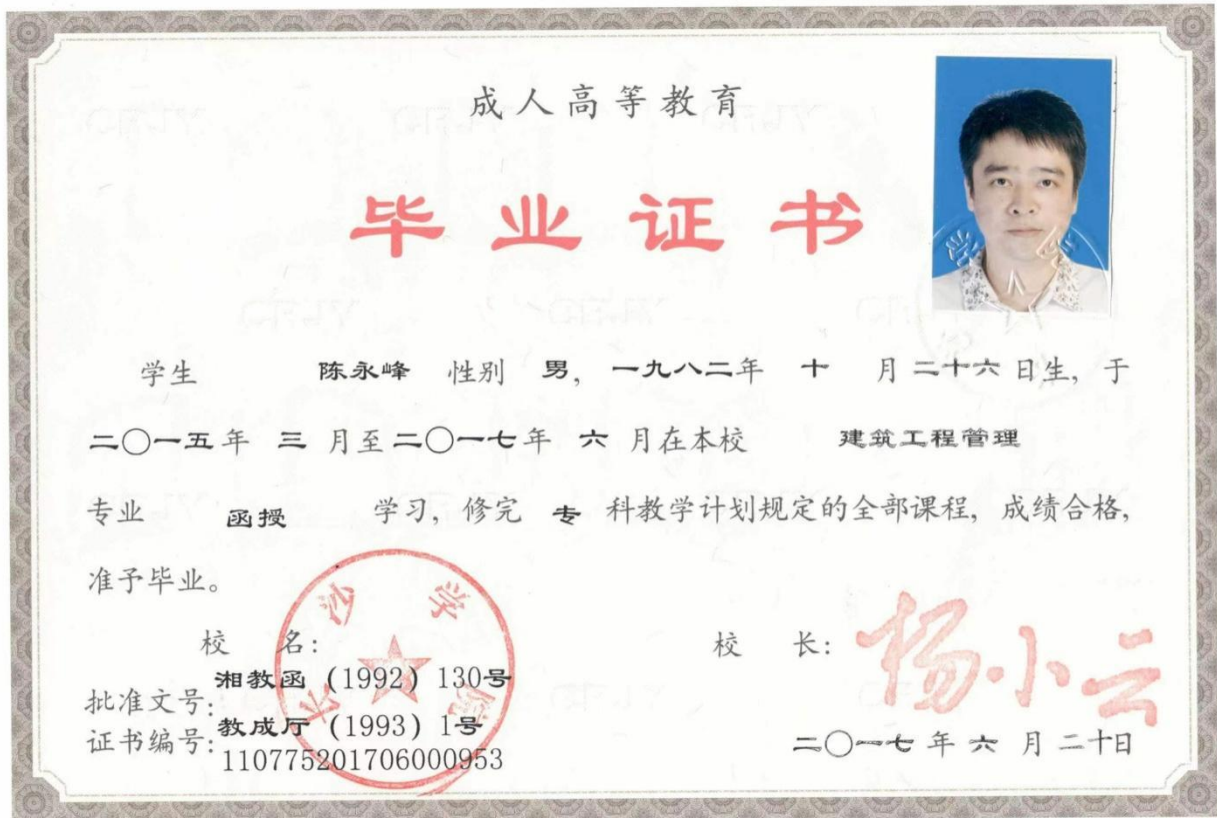 成人高等教育
毕业证书
学生 陈永峰 性别 男, 一九八二年 十 月 二十六 日生, 于
二〇一五年 三 月至二〇一七年 六 月在本校 建筑工程管理
专业 函授 学习, 修完 专 科教学计划规定的全部课程, 成绩合格,
准予毕业。
长沙学院
校 名: 校 长: 杨小云
批准文号: 湘教函 (1992) 130号
教成厅 (1993) 1号
证书编号: 110775201706000953
二〇一七 年 六 月 二十日